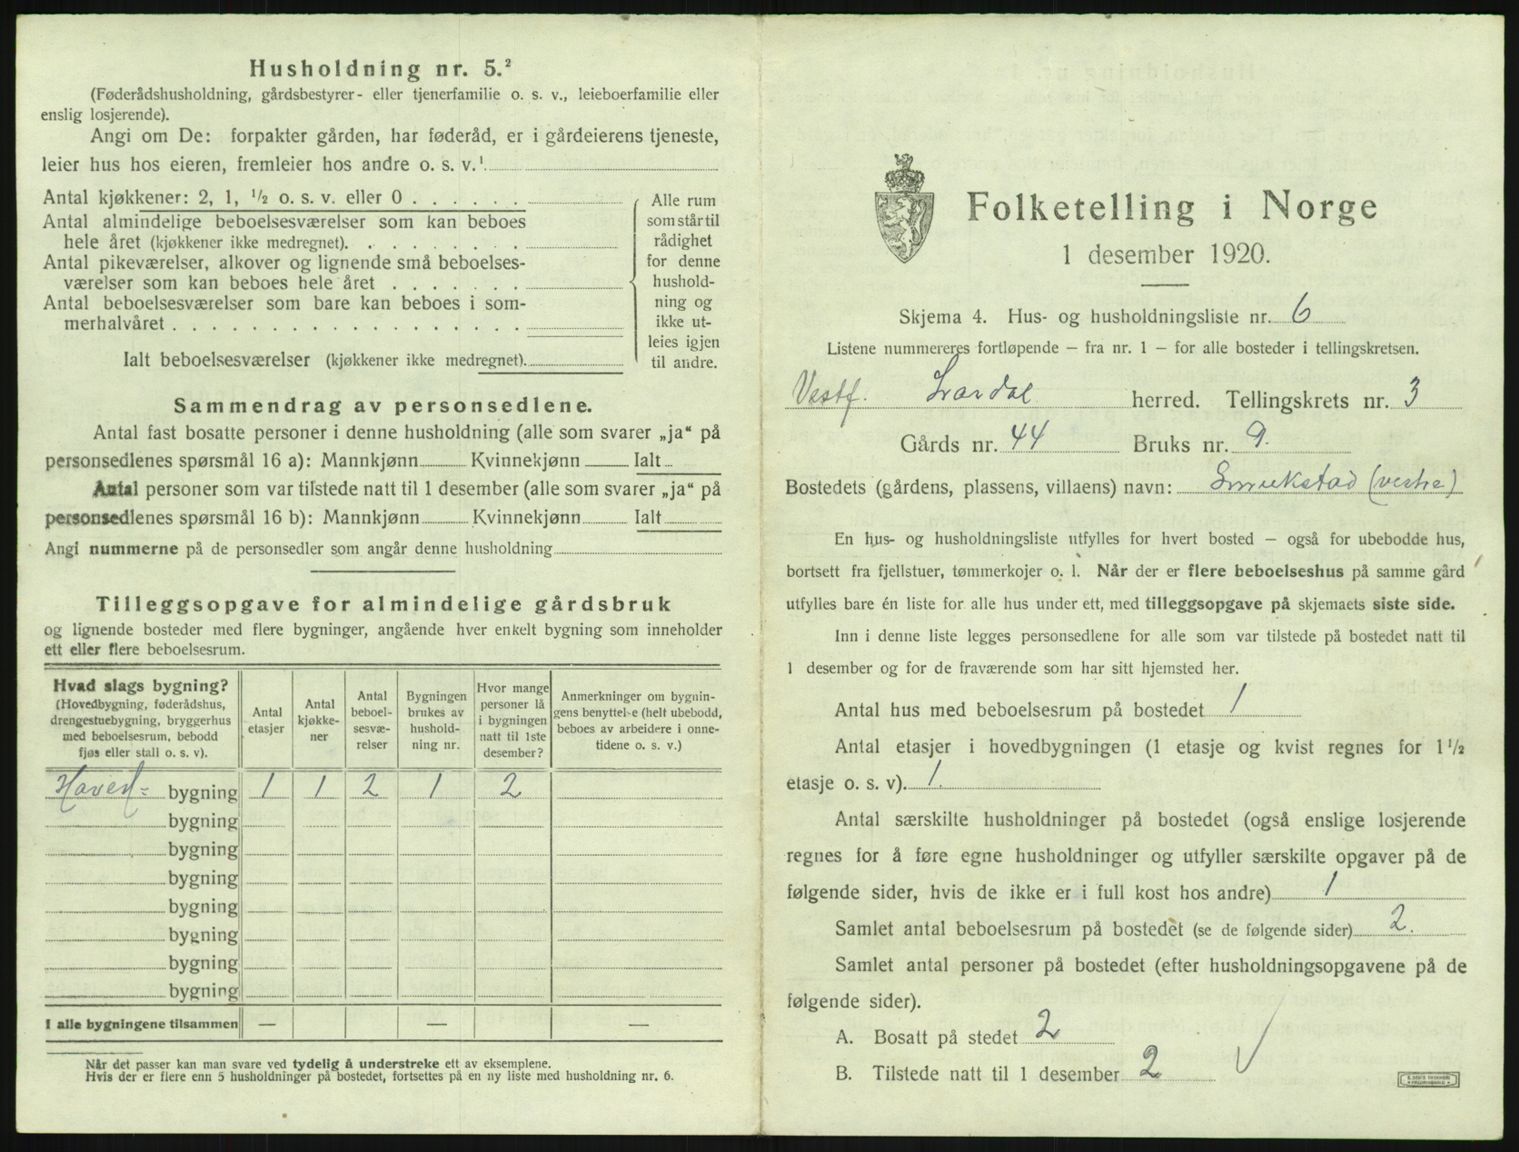 Husholdning nr. 5.²
(Føderådshusholdning, gårdsbestyrer- eller tjenerfamilie o. s. v., leieboerfamilie eller
enslig losjerende).
Angi om De: forpakter gården, har føderåd, er i gårdeierens tjeneste,
leier hus hos eieren, fremleier hos andre o. s. v.¹
Antal kjøkkener: 2, 1, ½ o. s. v. eller 0 . . . . . .
Antal almindelige beboelsesværelser som kan beboes
hele året (kjøkkener ikke medregnet). . . . . . . .
Antal pikeværelser, alkover og lignende små beboelses-
værelser som kan beboes hele året . . . . . . .
Antal beboelsesværelser som bare kan beboes i som-
merhalvåret . . . . . . . . . . . . . . . . . .
Ialt beboelsesværelser (kjøkkener ikke medregnet).
Alle rum
som står til
rådighet
for denne
hushold-
ning og
ikke ut-
leies igjen
til andre.
Sammendrag av personsedlene.
Antal fast bosatte personer i denne husholdning (alle som svarer „ja“ på
personsedlenes spørsmål 16 a): Mannkjønn Kvinnekjønn Ialt
Antal personer som var tilstede natt til 1 desember (alle som svarer „ja“ på
personsedlenes spørsmål 16 b): Mannkjønn Kvinnekjønn Ialt
Angi nummerne på de personsedler som angår denne husholdning
Tilleggsopgave for almindelige gårdsbruk
og lignende bosteder med flere bygninger, angående hver enkelt bygning som inneholder
ett eller flere beboelsesrum.
Hvad slags bygning?
(Hovedbygning, føderådshus,
drengestuebygning, bryggerhus
med beboelsesrum, bebodd
fjøs eller stall o. s. v).
Antal
etasjer
Antal
kjøkke-
ner
Antal
beboel-
sesvæ-
relser
Bygningen
brukes av
hushold-
ning nr.
Hvor mange
personer lå
i bygningen
natt til 1ste
desember?
Anmerkninger om bygnin-
gens benyttelse (helt ubebodd,
beboes av arbeidere i onne-
tidene o. s. v.)
Hoved= bygning 1 1 2 1 2
bygning
bygning
bygning
bygning
bygning
bygning
bygning
I alle bygningene tilsammen — — —
Når det passer kan man svare ved tydelig å understreke ett av eksemplene.
Hvis der er flere enn 5 husholdninger på bostedet, fortsettes på en ny liste med husholdning nr. 6.
Folketelling i Norge
1 desember 1920.
Skjema 4. Hus- og husholdningsliste nr. 6
Listene nummereres fortløpende — fra nr. 1 — for alle bosteder i tellingskretsen.
Vestf. Lardal herred. Tellingskrets nr. 3
Gårds nr. 44 Bruks nr. 9.
Bostedets (gårdens, plassens, villaens) navn: (vestre)
En hus- og husholdningsliste utfylles for hvert bosted — også for ubebodde hus,
bortsett fra fjellstuer, tømmerkojer o. l. Når der er flere beboelseshus på samme gård
utfylles bare én liste for alle hus under ett, med tilleggsopgave på skjemaets siste side.
Inn i denne liste legges personsedlene for alle som var tilstede på bostedet natt til
1 desember og for de fraværende som har sitt hjemsted her.
Antal hus med beboelsesrum på bostedet 1
Antal etasjer i hovedbygningen (1 etasje og kvist regnes for 1½
etasje o. s. v). 1.
Antal særskilte husholdninger på bostedet (også enslige losjerende
regnes for å føre egne husholdninger og utfyller særskilte opgaver på de
følgende sider, hvis de ikke er i full kost hos andre) 1
Samlet antal beboelsesrum på bostedet (se de følgende sider) 2.
Samlet antal personer på bostedet (efter husholdningsopgavene på de
følgende sider).
A. Bosatt på stedet 2
B. Tilstede natt til 1 desember 2 √